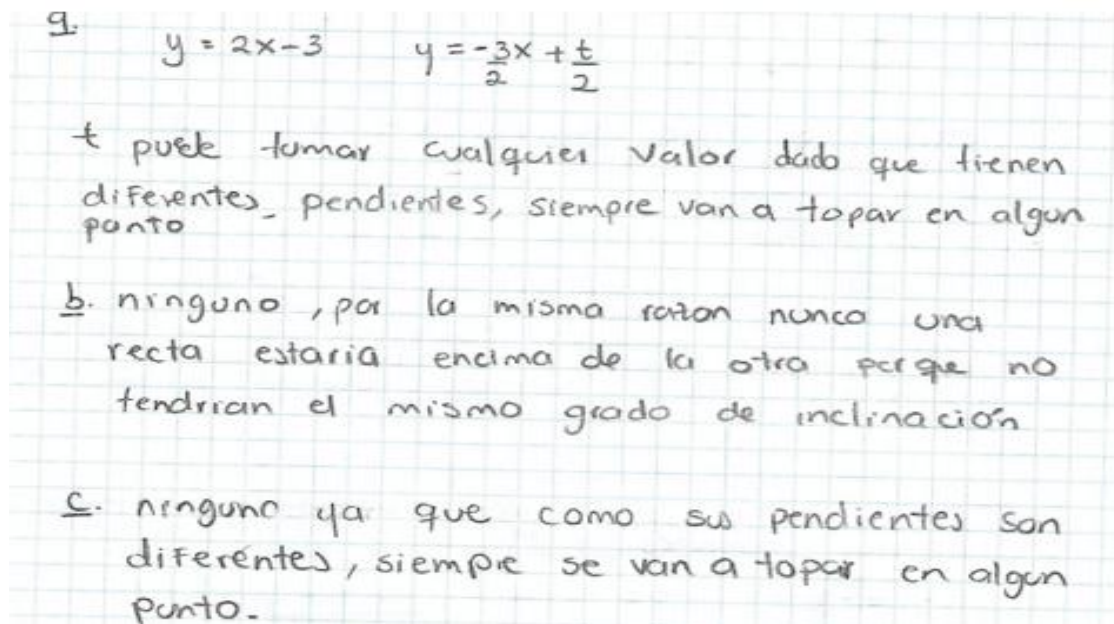 a.
y = 2x-3 y = -3/2 x + t/2
t puede tomar cualquier valor dado que tienen
diferentes pendientes, siempre van a topar en algun
punto
b. ninguno, por la misma razon nunca una
recta estaria encima de la otra porque no
tendrian el mismo grado de inclinación
c. ninguno ya que como sus pendientes son
diferentes, siempre se van a topar en algun
punto.